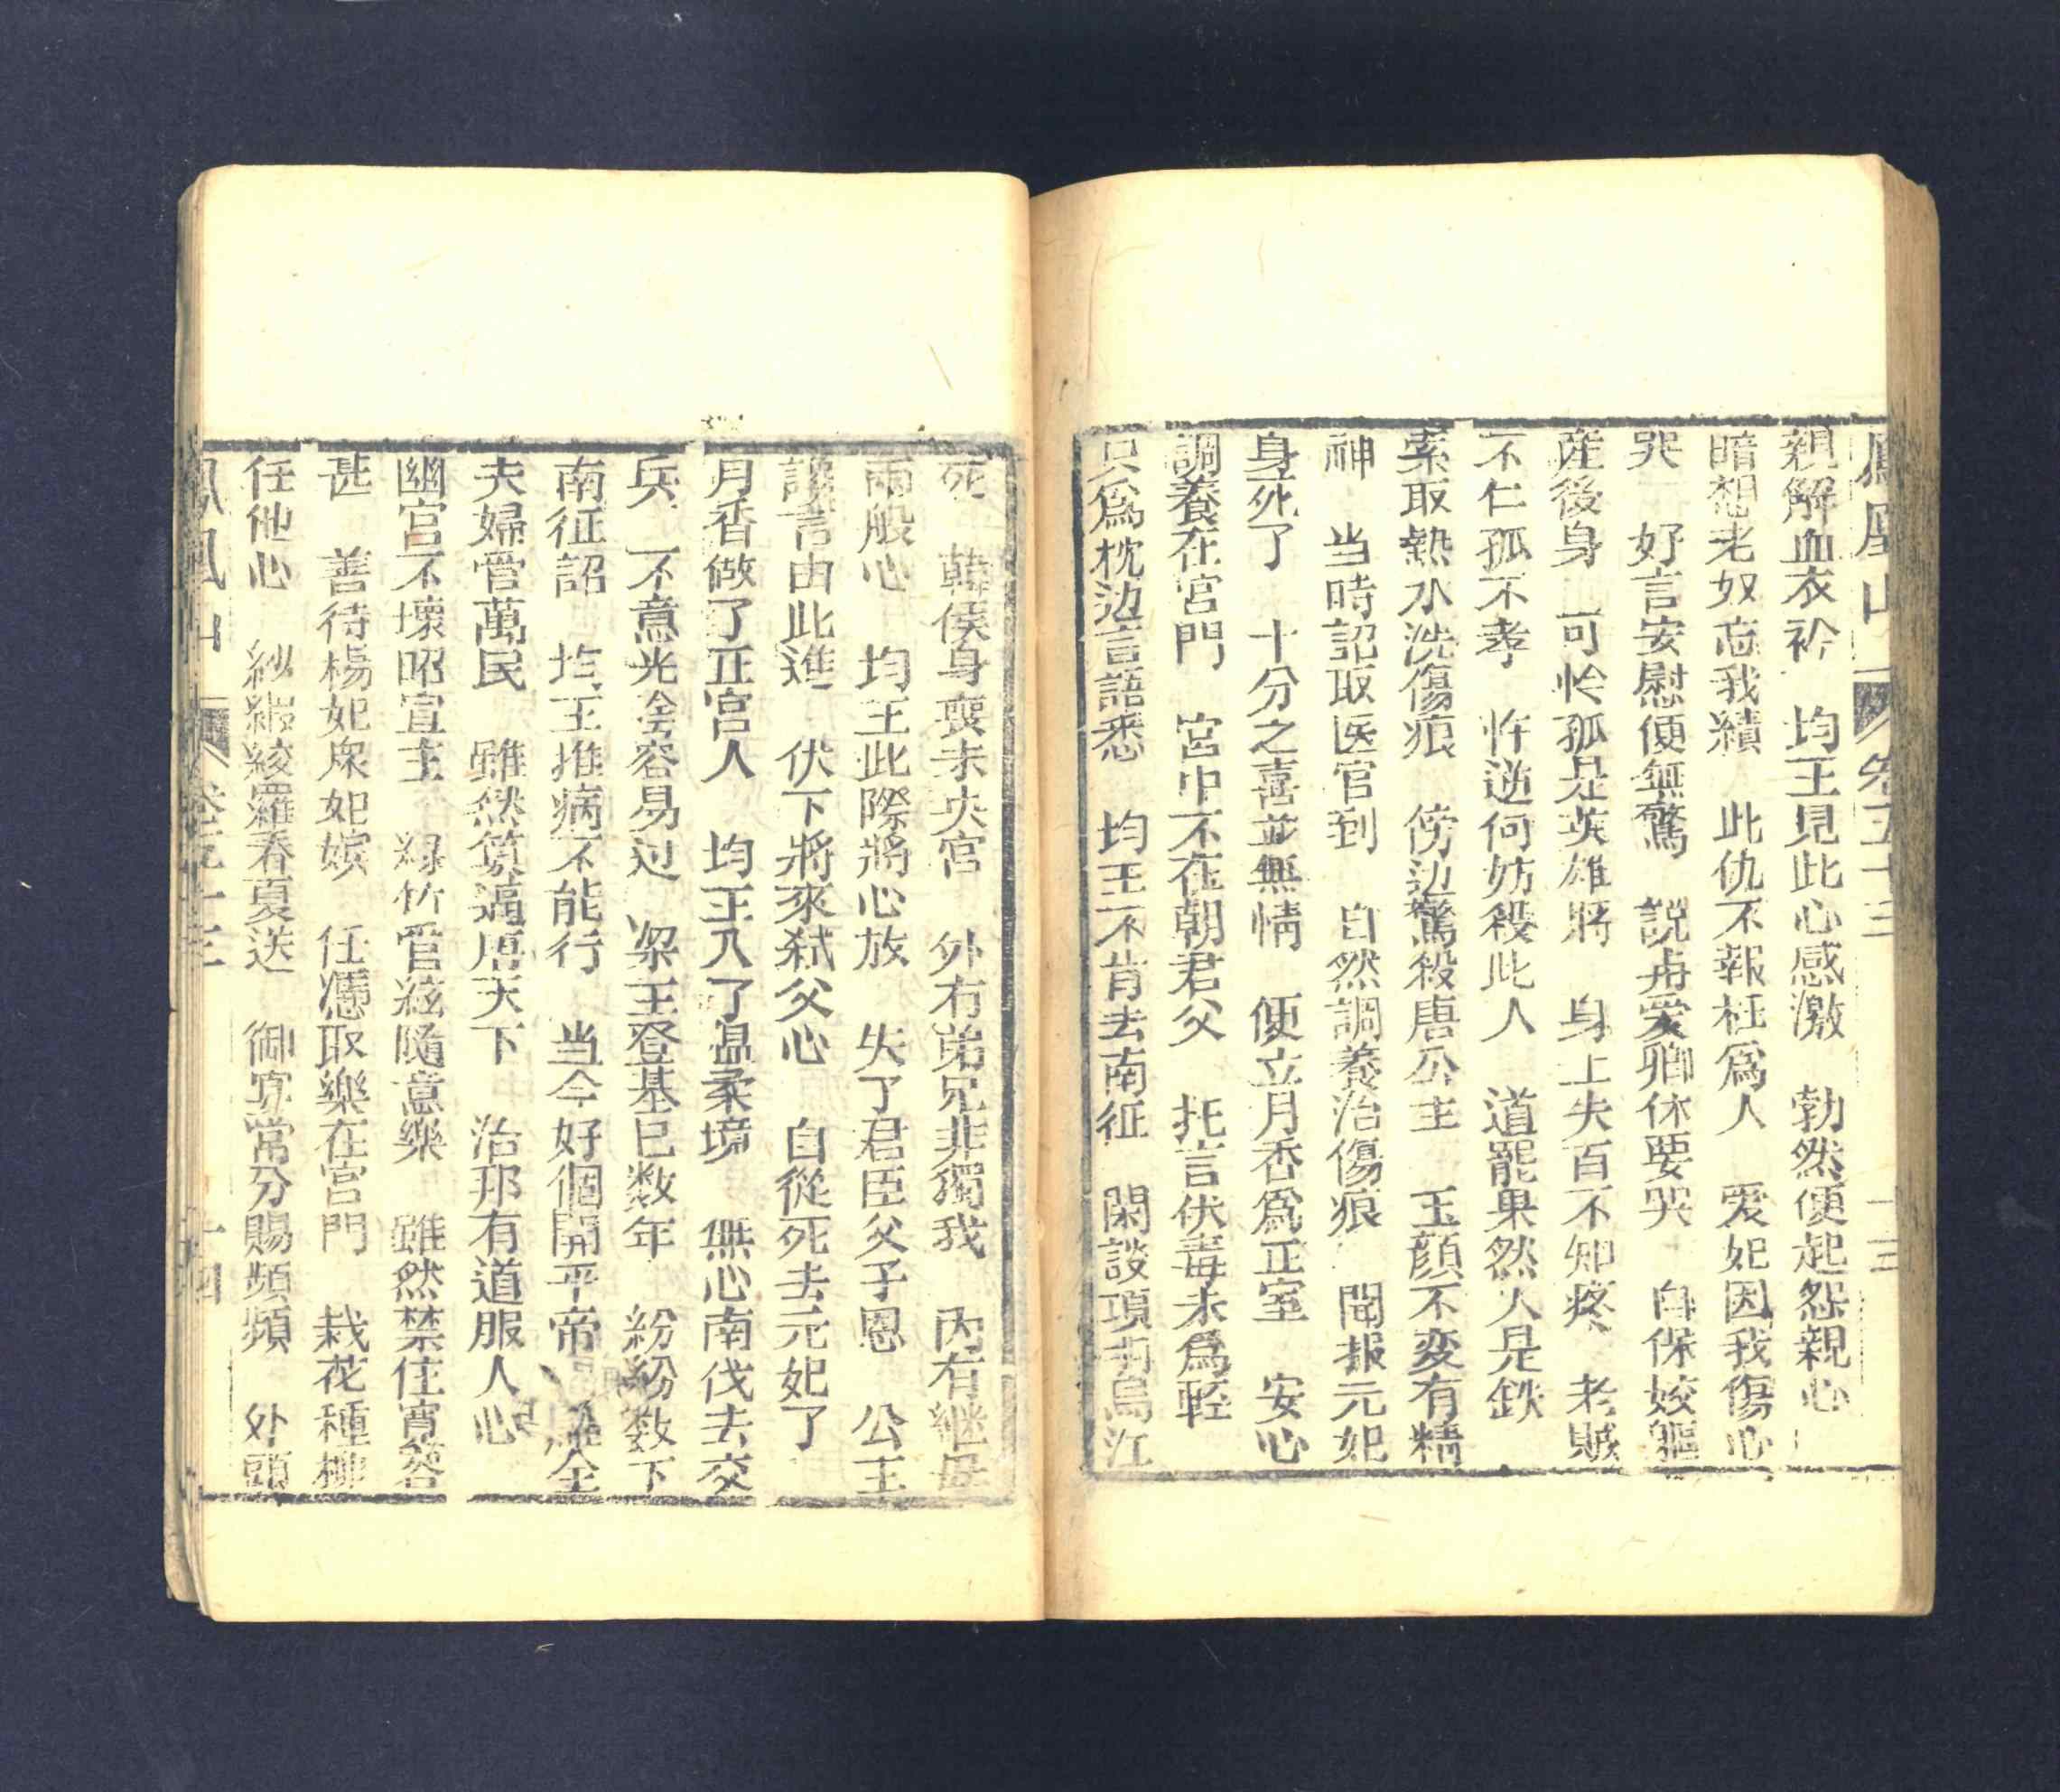 鳳凰山 卷五十三 十三
親解血衣衿 均王見此心感激 勃然便起怨親心
暗想老奴忘我績 此仇不報枉爲人 爱妃因我傷心
哭 好言安慰便無驚 説声爱卿休要哭 自保姣軀
産後身 可怜孤是英雄將 身上失百不知疼 老賊
不仁孤不孝 忤逆何妨殺此人 道罷果然人是鉄
索取熱水洗傷痕 傍边驚殺唐公主 玉顔不変有精
神 当時詔取医官到 自然調養治傷痕 聞报元妃
身死了 十分之喜並無情 便立月香爲正室 安心
調養在宮門 宮中不在朝君父 托言伏毒未爲輕
只爲枕边言語悉 均王不肯去南征 閑談項羽烏江
死 韓侯身喪未央宮 外有弟兄非獨我 内有継母
兩般心 均王此際將心放 失了君臣父子恩 公主
談言由此進 伏下將來弑父心 自從死去元妃了
月香做了正宮人 均王入了温柔境 無心南伐去交
兵 不意光陰容易过 梁王登基已数年 紛紛数下
南征詔 均王推病不能行 当今好個開平帝 全
夫婦管萬民 雖然篡逼唐天下 治邦有道服人心
幽宮不壞昭宣主 絲竹管絃隨意樂 雖然禁住宵容
甚 善待楊妃衆妃嬪 任憑取樂在宮門 栽花種柳
任他心 紗緞綾羅春夏送 御宴常分賜頻頻 外頭
鳳凰山 卷五十三 十四